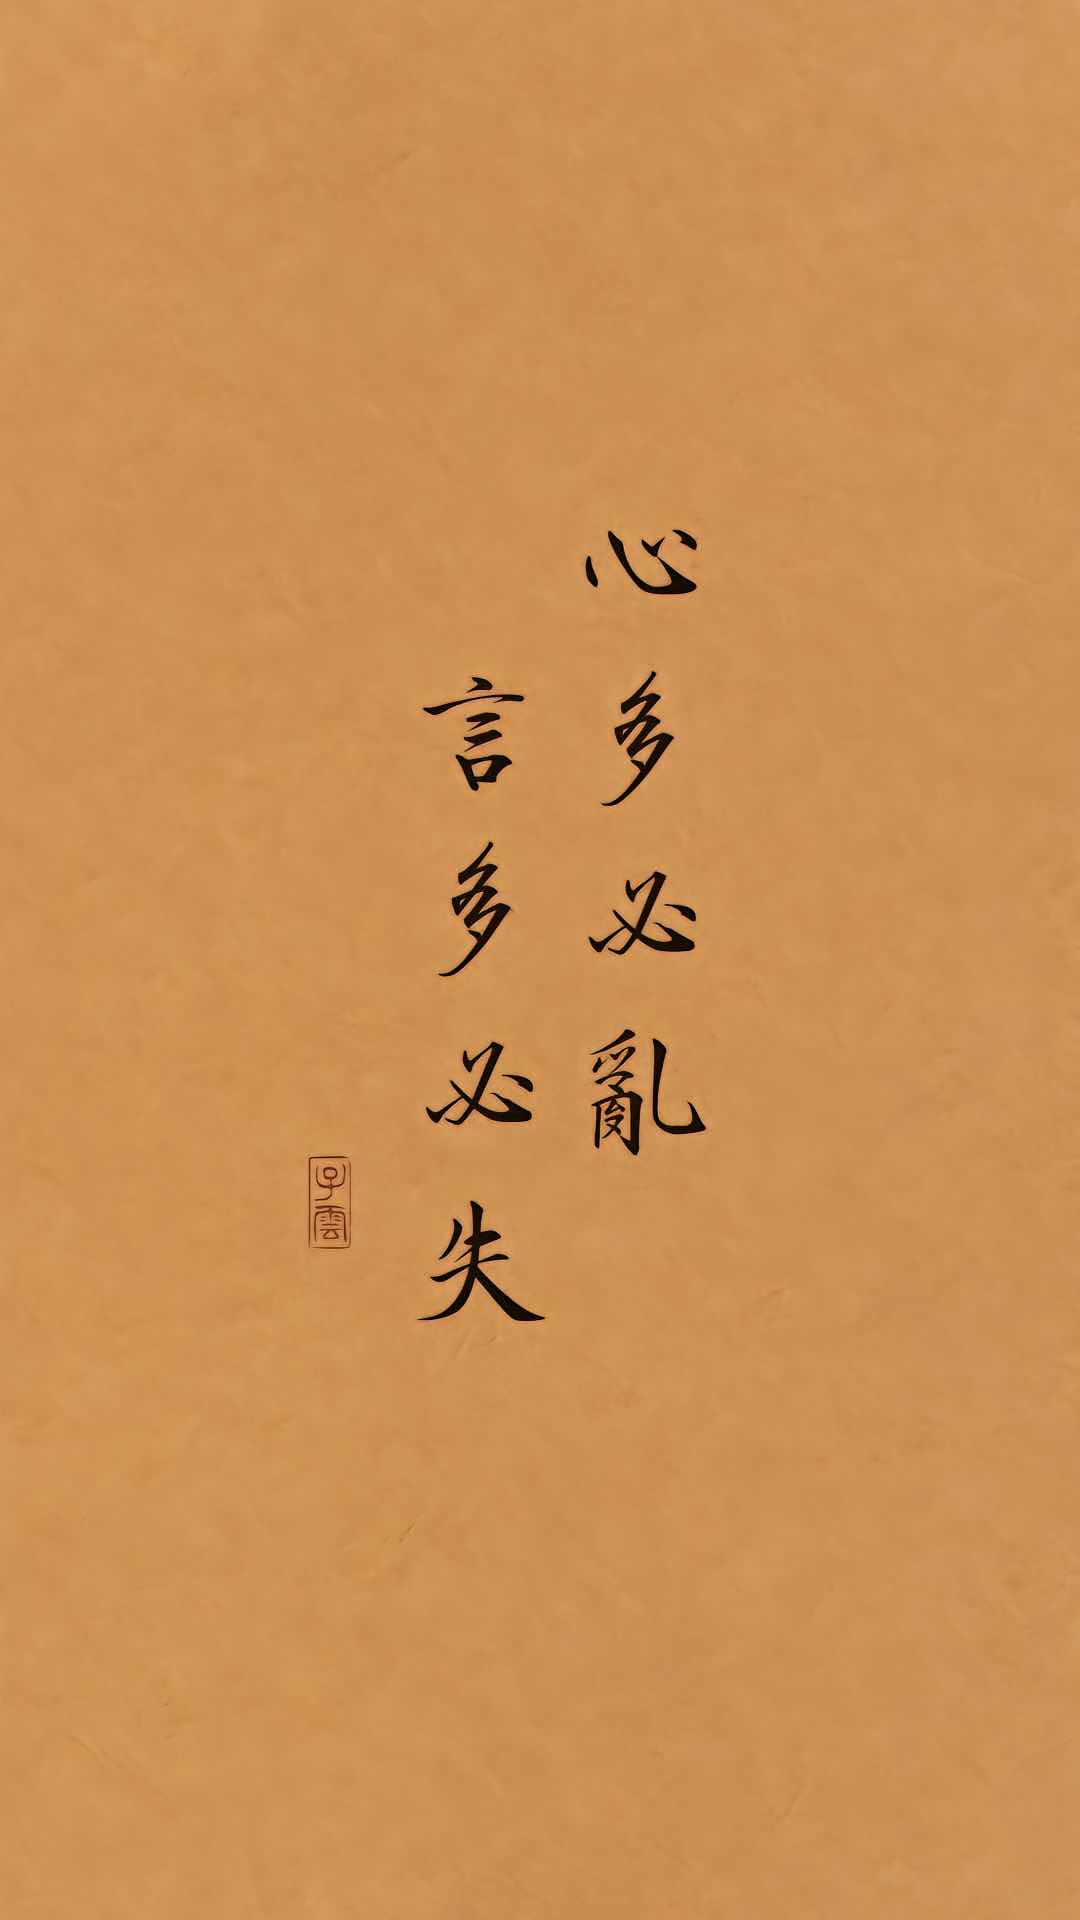 心多必亂
言多必失
子雲